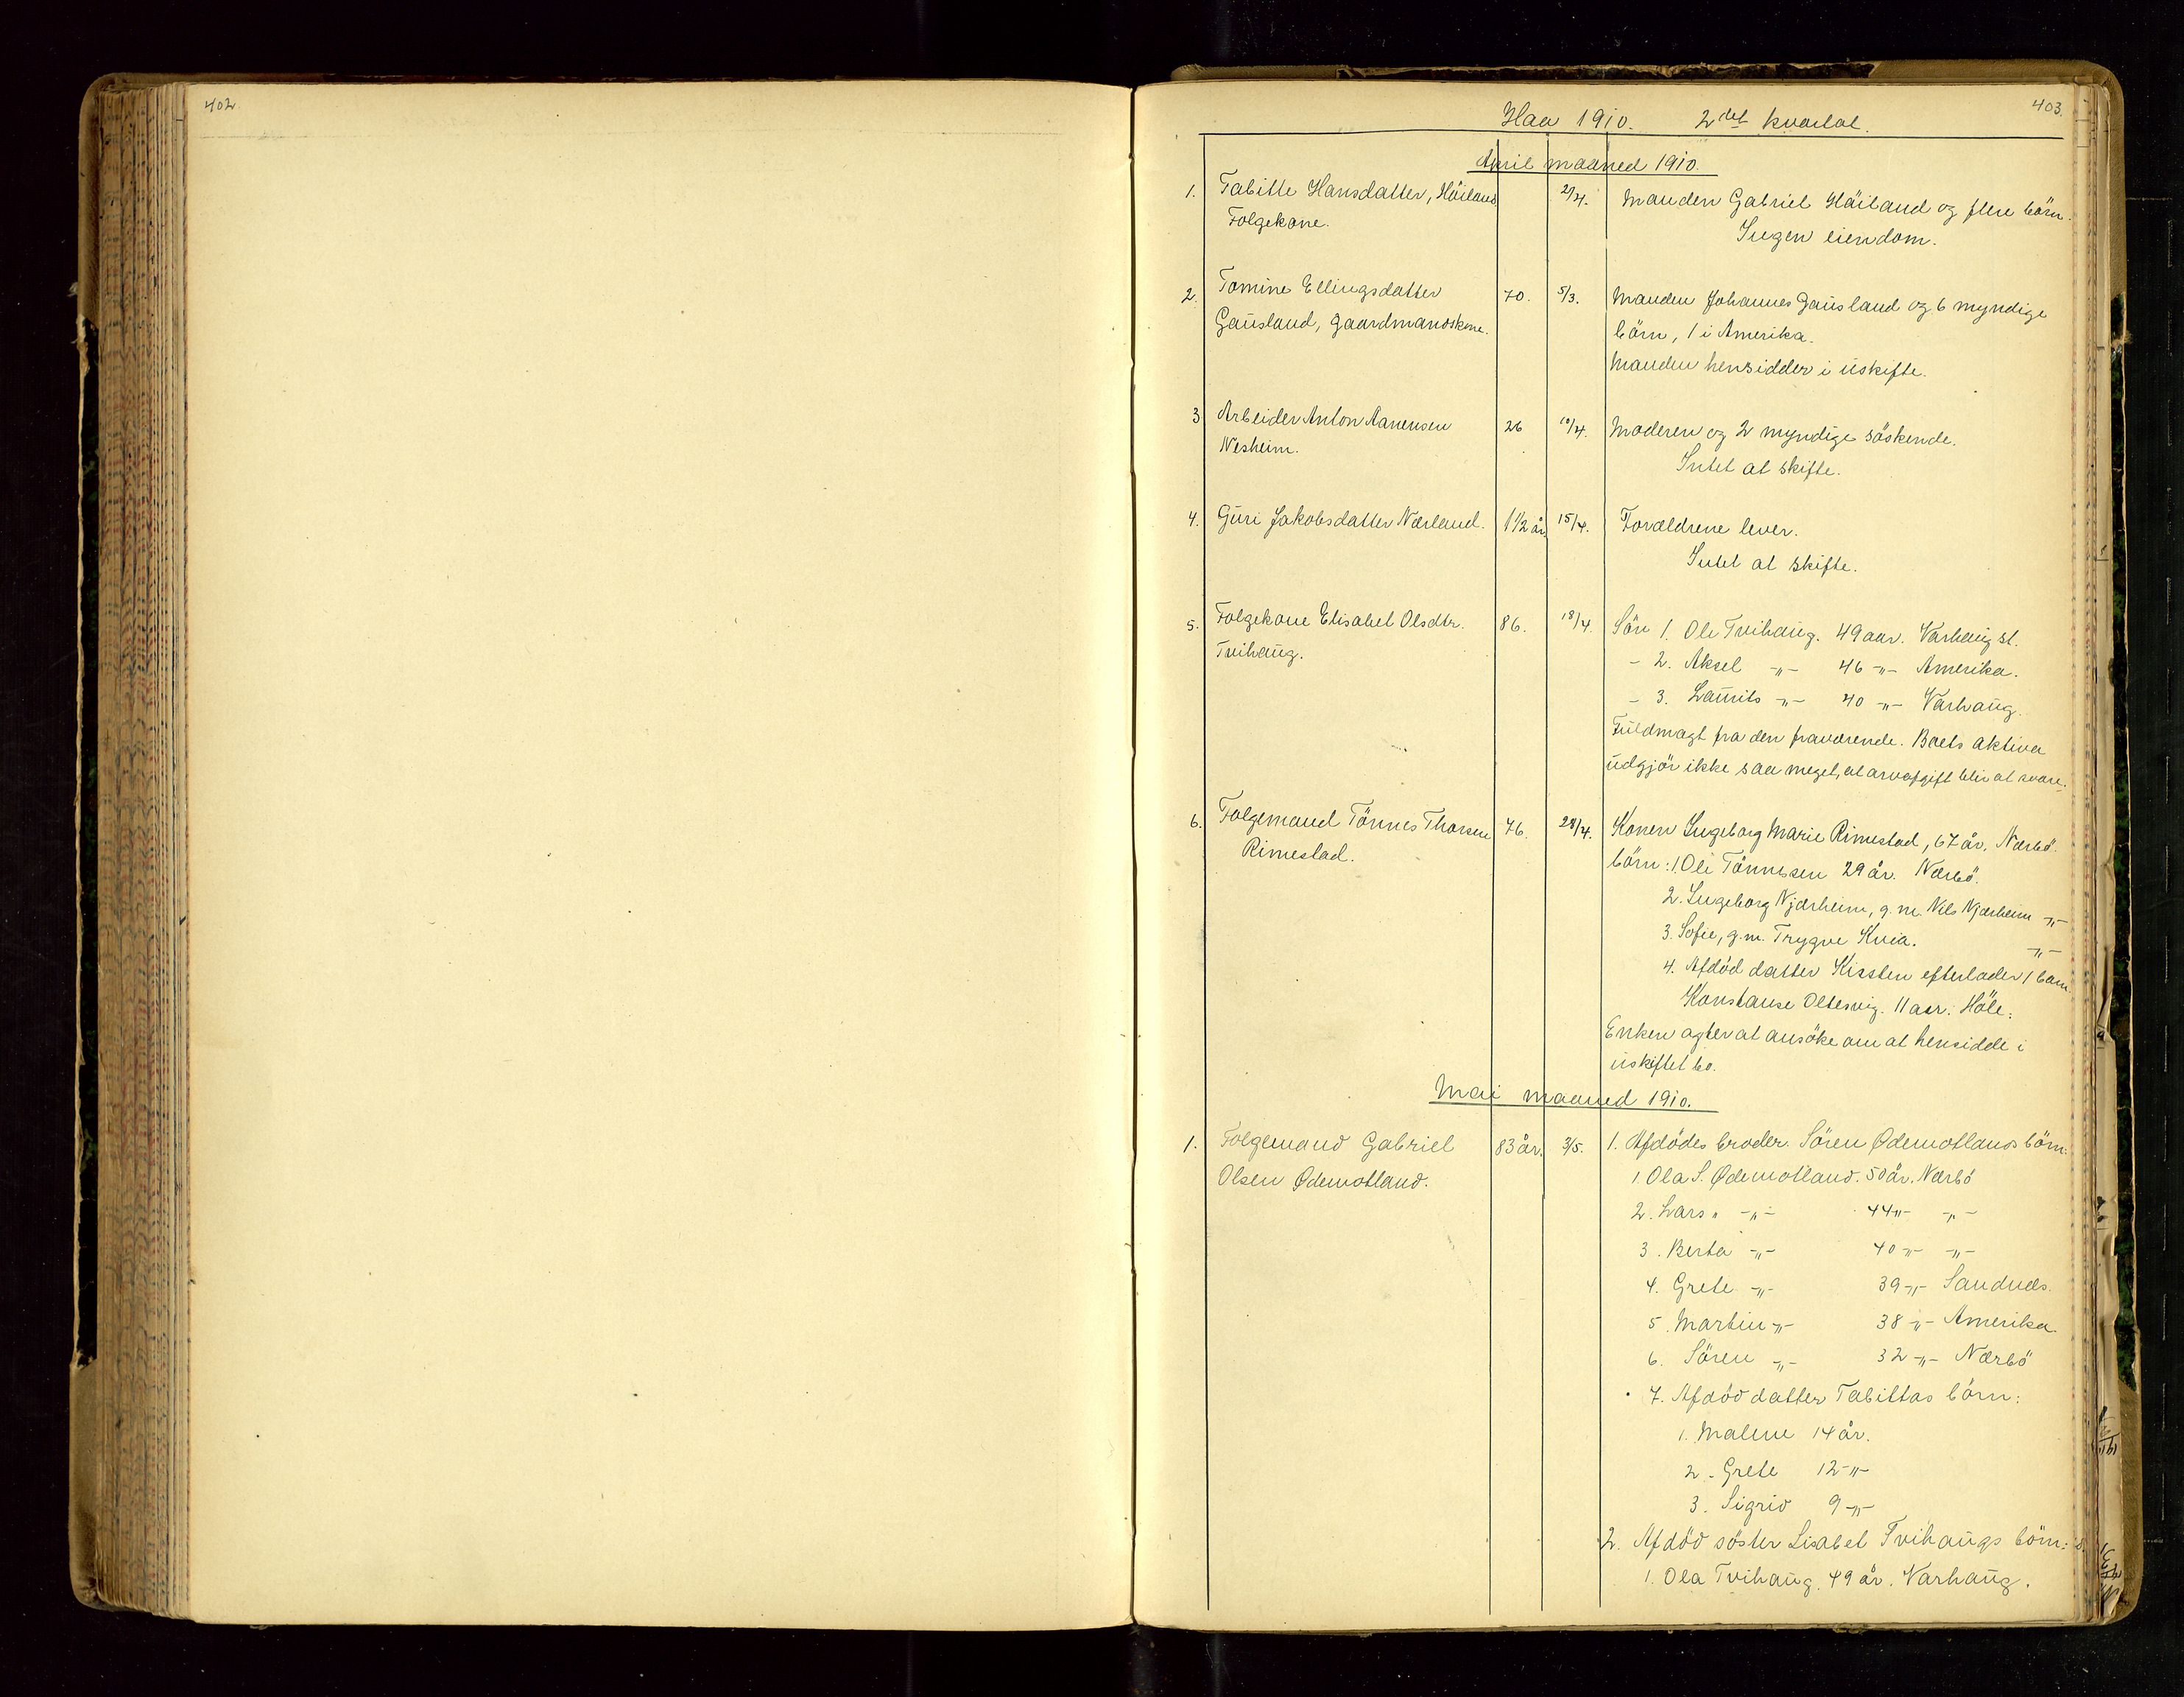 402.
403.
Haa 1910. 2det kvartal.
April maaned 1910.
1. Tabitte Hansdatter, Höiland 2/4. Manden Gabriel Häiland og flere börn.
Folgekone. Ingen eiendom.
2. Tomine Ellingsdatter 70. 5/3. Manden Johannes Gausland og 6 myndige
Gausland, gaardmandskone. börn, 1 i Amerika.
Manden hensidder i uskifte.
3 Arbeider Anton Aanensen 26 10/4. Moderen og 2 myndige söskende.
Nesheim. Intet at skifte.
4. Guri Jakobsdatter Nærland. 1 1/2 år 15/4. Forældrene lever.
Intet at skifte.
5. Folgekone Elisabet Olsdtr. 86. 18/4. Sön 1. Ole Tvihaug. 49 aar. Varhaug st.
Tvihaug. - 2. Aksel -"- 46 -"- Amerika.
- 3. Laurits -"- 40 -"- Varhaug.
Fuldmagt fra den fraværende. Boets aktiva
udgjör ikke saa meget, at arveafgift blir at svare.
6. Folgemand Tönnes Thorsen 76. 28/4. Konen Ingeborg Marie Rimestad, 67 år. Nærbö.
Rimestad. börn: 1. Ole Tönnesen 29 år. Nærbö.
2. Ingeborg Njærheim, g.m. Nils Njærheim -"-
3. Sofie, g.m. Trygve Kvia. -"-
4. Afdöd datter Kirsten efterlader 1 barn
Konstanse Oltesvig. 11 aar. Höle.
Enken agter at ansöke om at hensidde i
uskiftet bo.
Mai maaned 1910.
1. Folgemand Gabriel 83 år. 3/5. 1. Afdödes broder. Sören Ødemotlands börn:
Olsen Ødemotland. 1. Ola S. Ødemotland. 50 år. Nærbö
2. Lars " -"- 44 -"- -"-
3. Berta -"- 40 -"- -"-
4. Grete -"- 39 -"- Sandnæs.
5. Martin -"- 38 -"- Amerika
6. Sören -"- 32 -"- Nærbö
7. Afdöd datter Tabittas börn:
1. Malene 14 år.
2. Grete 12 -"-
3. Sigrid 9 -"-
2. Afdöd söster Lisabet Tvihaugs börn:
1. Ola Tvihaug. 49 år. Varhaug.